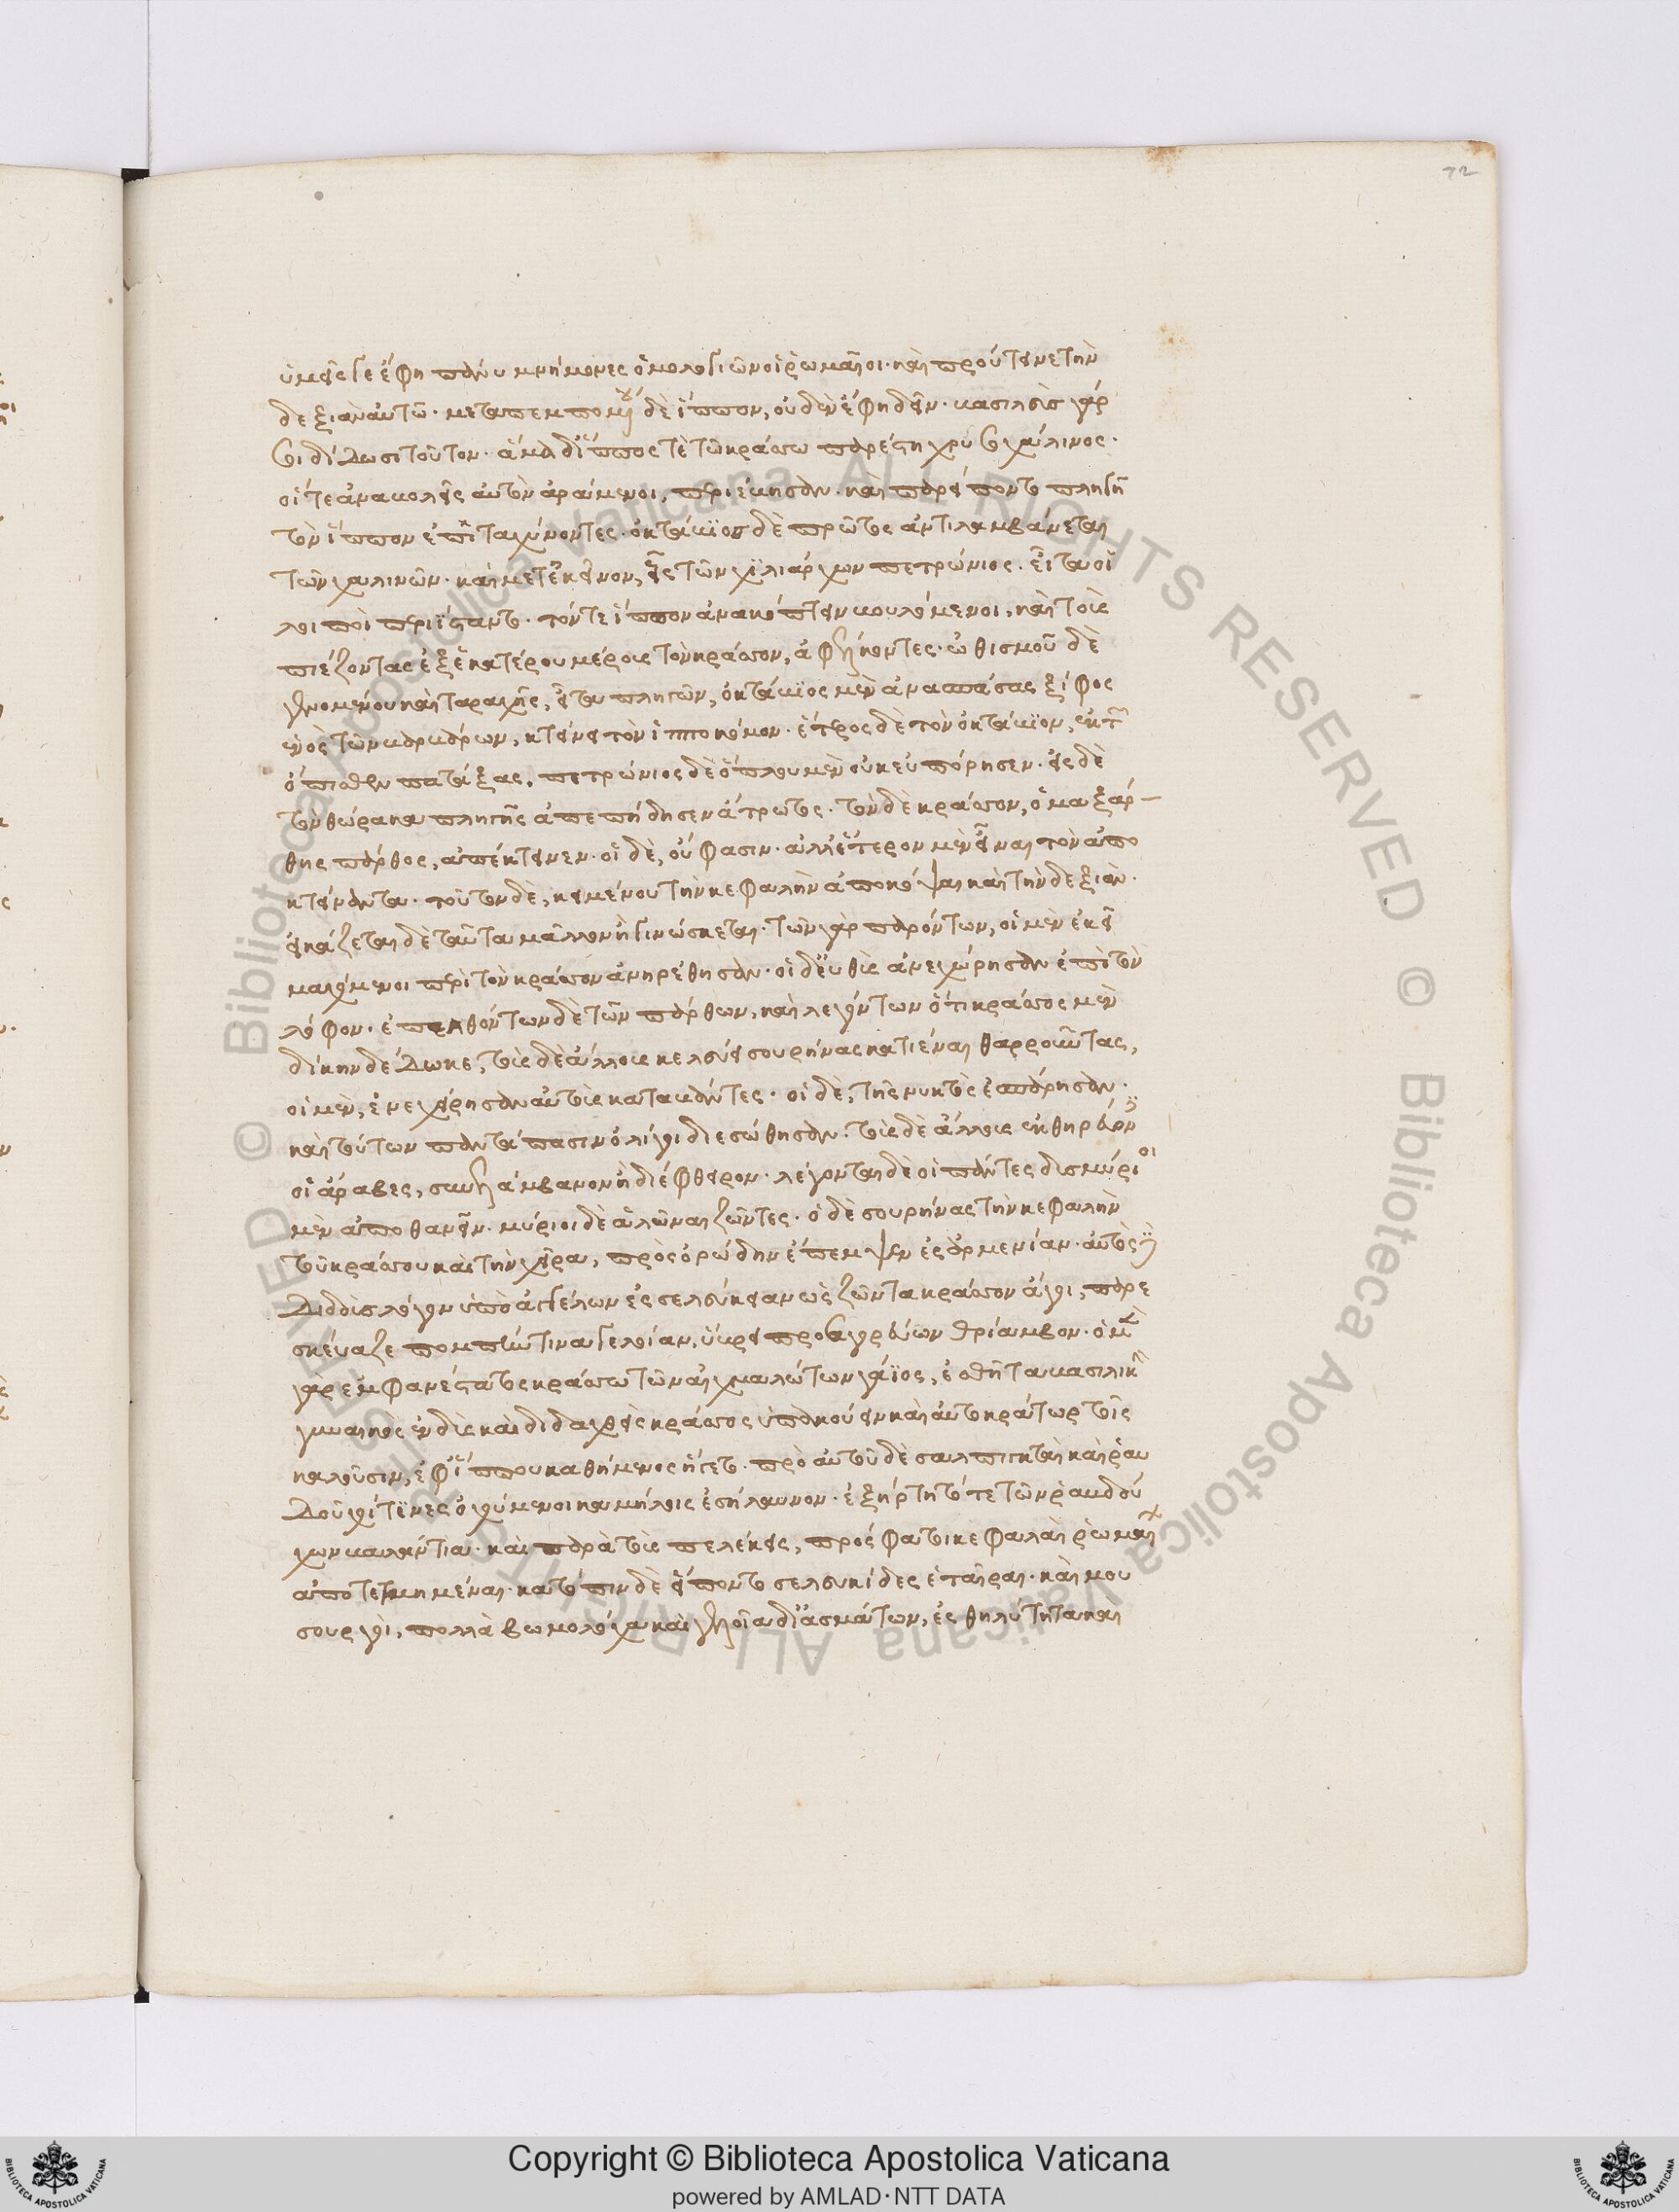 ὑμεῖς γε ἔφη πάνυ μνήμονες ὁμολογιῶν οἱ ῥωμαῖοι· καὶ προύτεινε τὴν
δεξιὰν αὐτῶ· μεταπεμπομένου δὲ ἵππον, οὐδὲν ἔφη δεῖν· βασιλεὺς γάρ
σοι δίδωσι τοῦτον· ἅμα δ' ἵππος τὲ τῶ κράσσω παρέστη χρυσοχάλινος·
οἵ τε ἀναβολεῖς αὐτὸν ἀράμενοι, περιέβησαν· καὶ παρείποντο πληγῆ
τὸν ἵππον ἐπιταχύνοντες· ὀκτάβιος δὲ πρῶτος ἀντιλαμβάνεται
τῶν χαλινῶν· καὶ μετ' ἐκεῖνον, εἷς τῶν χιλιάρχων πετρώνιος· εἶτα οἱ
λοιποὶ περιΐσταντο· τόν τε ἵππον ἀνακόπτειν βουλόμενοι, καὶ τοὺς
πιέζοντας ἐξ ἑκατέρου μέρους τὸν κράσσον, ἀφέλκοντες· ὠθισμοῦ δὲ
γενομένου καὶ ταραχῆς, εἶτα πληγῶν, ὀκτάβιος μὲν ἀνασπάσας ξίφος
ἑνὸς τῶν βαρβάρων, κτείνει τὸν ἱπποκόμον· ἕτερος δὲ τὸν ὀκτάβιον, ἐκ τοῦ
ὄπισθεν πατάξας, πετρώνιος δὲ ὅπλου μὲν οὐκ εὐπόρησεν· εἰς δὲ
τὸν θώρακα πληγεὶς ἀπεπήδησεν ἄτρωτος· τὸν δὲ κράσσον, ὁμαξάρ-
θης πάρθος, ἀπέκτεινεν· οἱ δὲ, οὔ φασιν· ἀλλ' ἕτερον μὲν εἶναι τὸν ἀπο
κτείναντα· τοῦτον δὲ, κειμένου τὴν κεφαλὴν ἀποκόψαι καὶ τὴν δεξιάν·
εἰκάζεται δὲ ταῦτα μᾶλλον ἢ γινώσκεται· τῶν γὰρ παρόντων, οἱ μὲν ἐκεῖ
μαχόμενοι περὶ τὸν κράσσον ἀνηρέθησαν· οἱ δ' εὐθὺς ἀνεχώρησαν ἐπὶ τὸν
λόφον· ἐπελθόντων δὲ τῶν πάρθων, καὶ λεγόντων ὅτι κράσσος μὲν
δίκην δέδωκε, τοὺς δὲ ἄλλους κελεύει σουρήνας κατιέναι θαρροῦντας,
οἱ μὲν, ἐνεχείρησαν αὐτοὺς καταβάντες· οἱ δὲ, τῆς νυκτὸς ἐσπάρησαν·
καὶ τούτων παντάπασιν ὀλίγοι διεσώθησαν· τοὺς δὲ ἄλλους ἐκθηρεύοντες
οἱ ἄραβες, συνελάμβανον ἢ διέφθειρον· λέγονται δὲ οἱ πάντες δισμύριοι
μὲν ἀποθανεῖν· μύριοι δὲ ἁλῶναι ζῶντες· ὁ δὲ σουρήνας τὴν κεφαλὴν
τοῦ κράσσου καὶ τὴν χεῖρα, πρὸς ὀρώδην ἔπεμψεν ἐς ἀρμενίαν· αὐτὸς δὲ
διαδοὺς λόγον ὑπὸ ἀγγέλων ἐς σελεύκειαν ὡς ζῶντα κράσσον ἄγοι, παρε
σκέυαζε πομπήν τινα γελοίαν, ὕβρει προσαγορεύων θρίαμβον· ὁ μάλιστα
γὰρ ἐμφανέστατος κράσσω τῶν αἰχμαλώτων γάϊος, ἐσθῆτα βασιλικὴν
γυναικὸς ἐνδὺς καὶ διδαχθεὶς κράσσος ὑπακούειν καὶ αὐτοκράτωρ τοῖς
καλοῦσιν, ἐφ' ἵππου καθήμενος ἤγετο· πρὸ αὐτοῦ δὲ σαλπιγκταὶ καὶ ῥαυ
δοῦχοί τινες ὀχούμενοι καμήλοις ἐσήλαυνον· ἐξήρτητό τε τῶν ῥαβδού
χων βαλάντια· καὶ παρὰ τοὺς πελέκεις, πρόσφατοι κεφαλαὶ ῥωμαίων
ἀποτετμημέναι· κατόπιν δὲ εἵποντο σελευκίδες ἑταῖραι· καὶ μου
σουργοὶ, πολλὰ βωμολόχα καὶ γελοῖα δι' ἀσμάτων, ἐς θηλύτητα καὶ
72
Copyright © Biblioteca Apostolica Vaticana
powered by AMLAD·NTT DATA